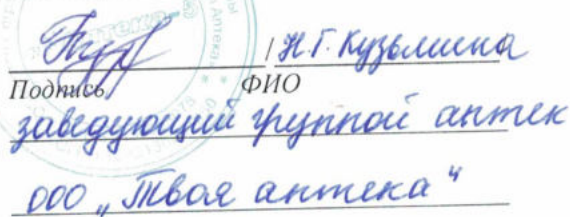 / Н.Г. Кузьмина
Подпись ФИО
заведующий группой аптек
ООО „Твоя аптека“